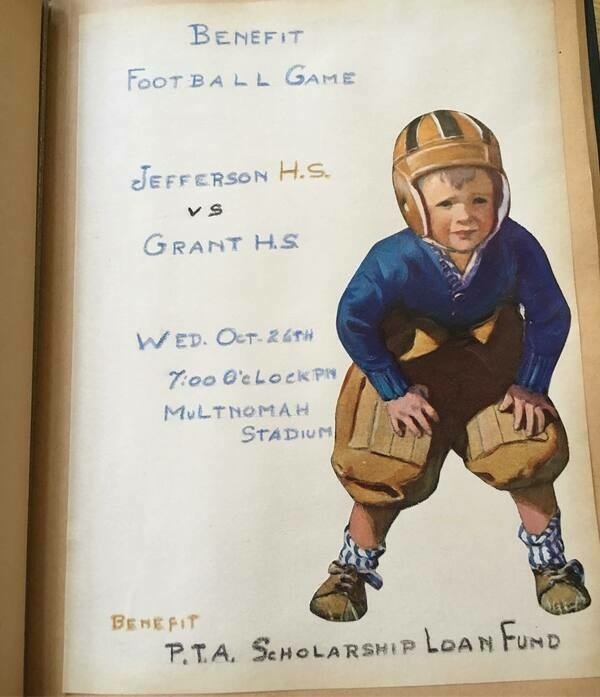 BENEFIT
FOOTBALL GAME
JEFFERSON H.S.
VS
GRANT H.S
WED. OCT-26TH
7:00 O'CLOCK PM
MULTNOMAH
STADIUM
BENEFIT
P.T.A. SCHOLARSHIP LOAN FUND